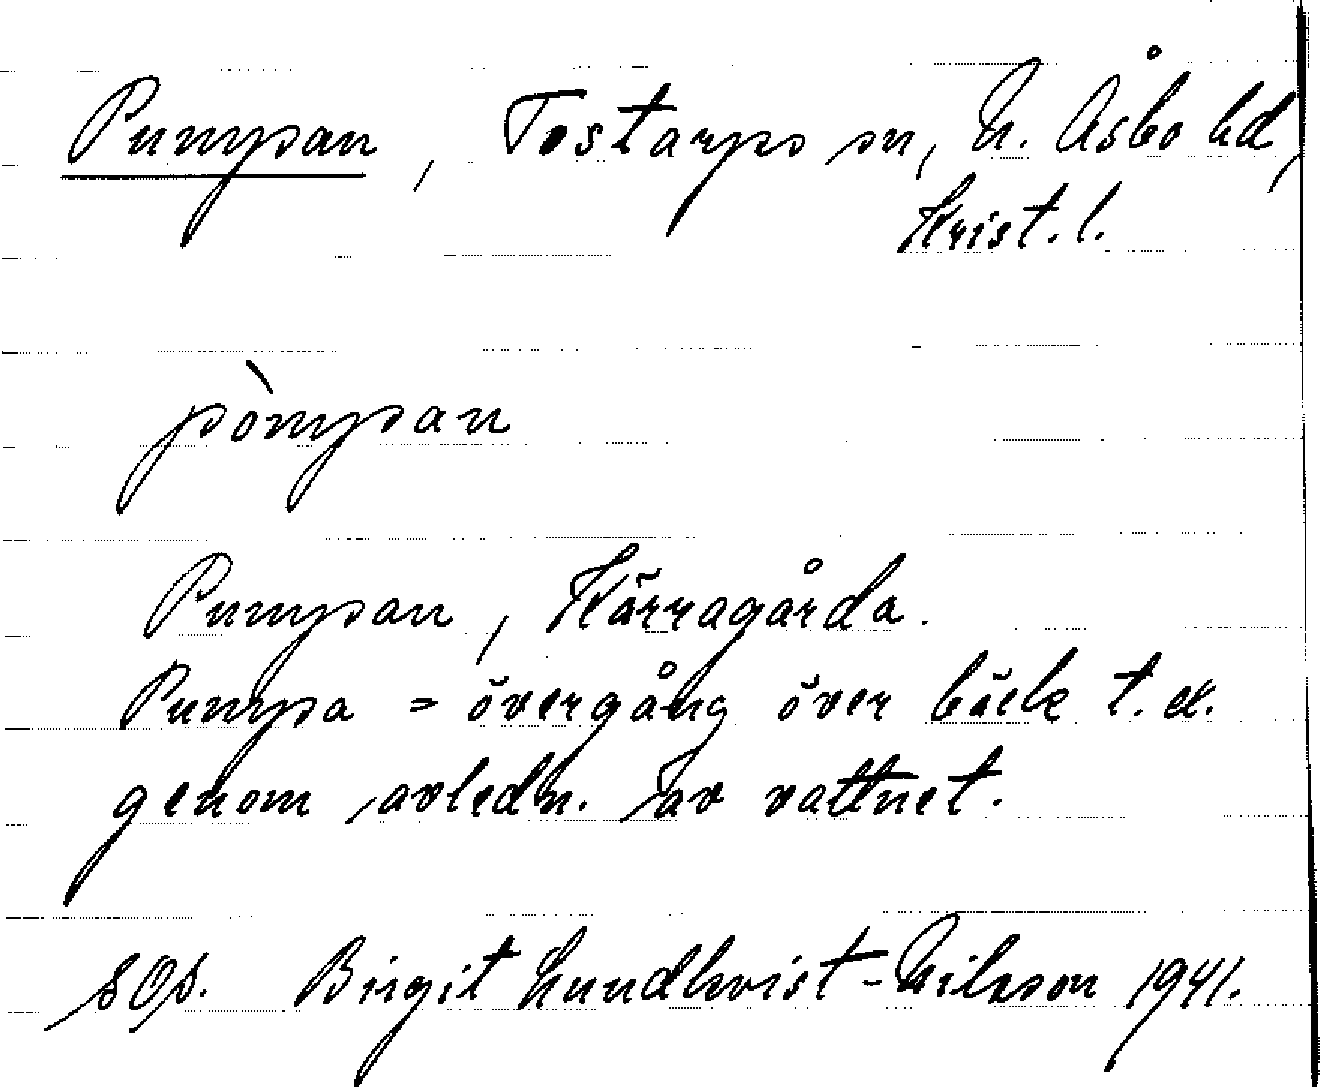 Pumpan, Tostarps sn, N. Åsbo hd,
Krist. l.
pòmpan
Pumpan, Kärragårda.
Pumpa = övergång över bäck t. ex.
genom avledn. av vattnet.
Birgit Lundkvist-Nilsson 1941.